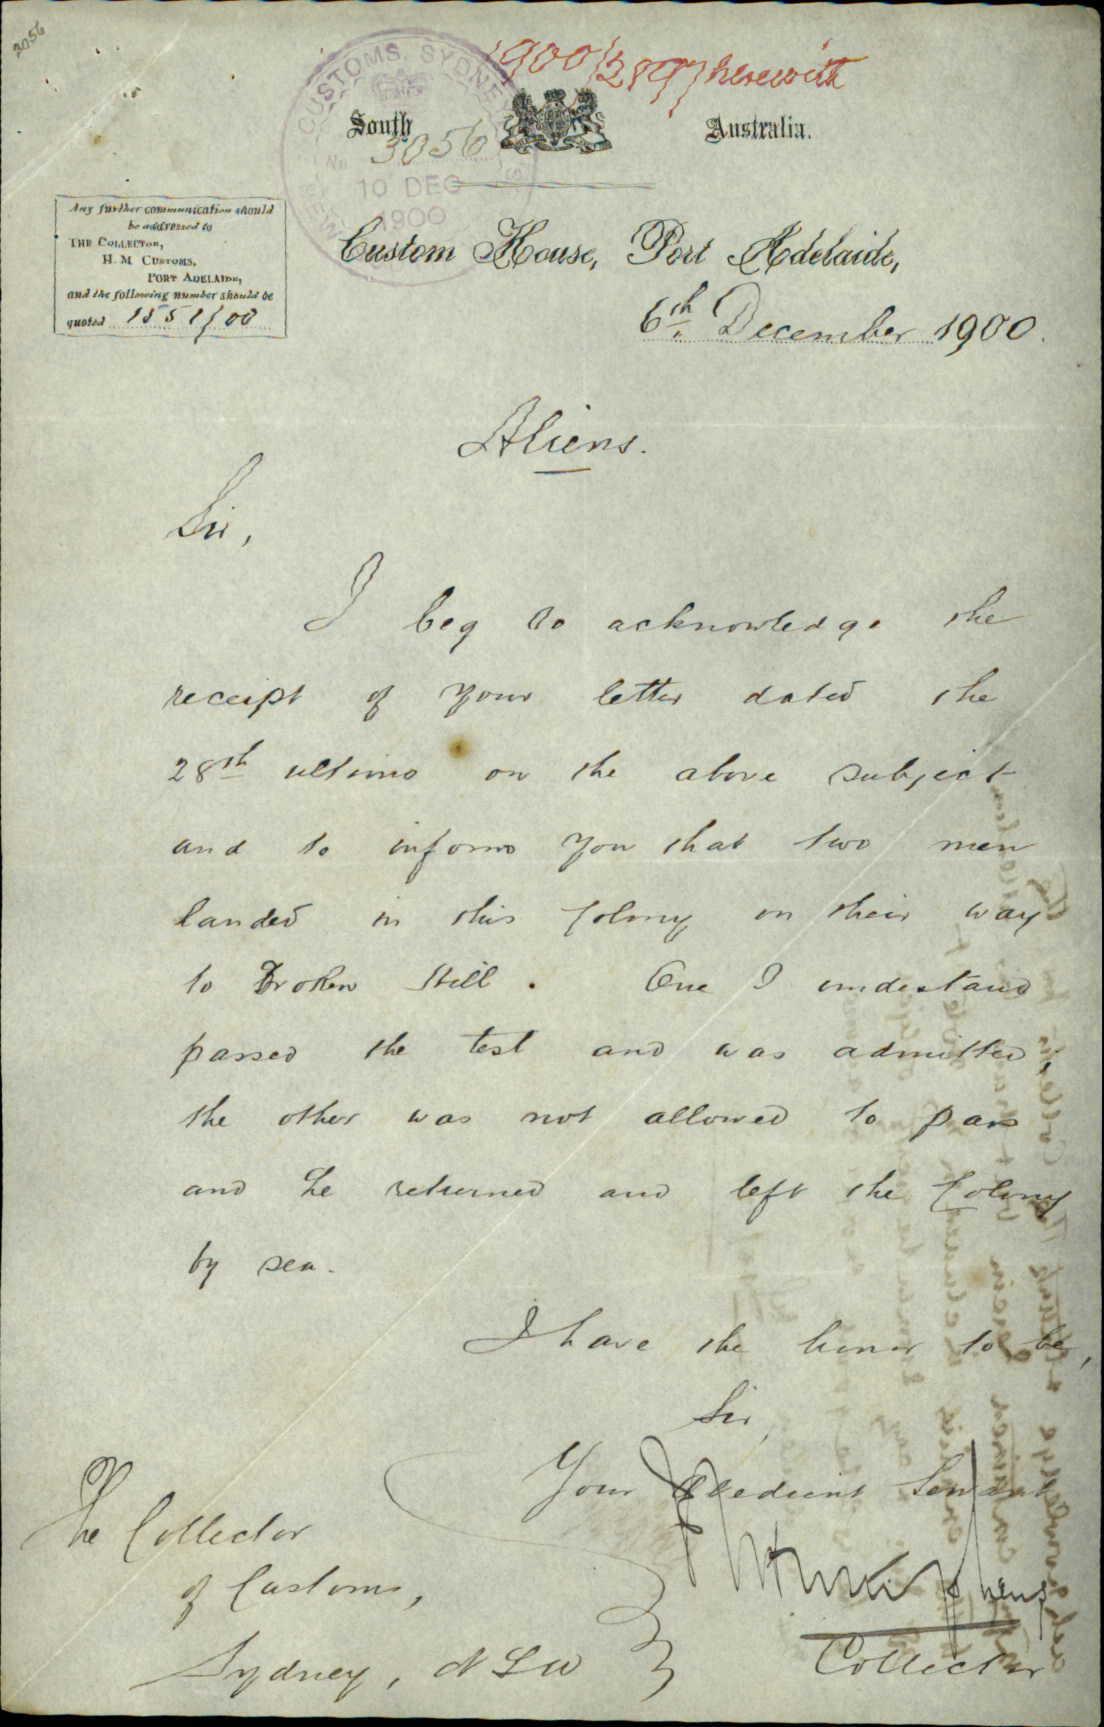 3056
1900/2897 herewith
CUSTOMS, SYDNEY
South Australia.
No 3056
10 DEC
1900
Any further communication should
be addressed to
THE COLLECTOR,
H. M. CUSTOMS,
PORT ADELAIDE,
and the following number should be
quoted 1551/00
Custom House, Port Adelaide,
6th December 1900.
Aliens.
Sir,
I beg to acknowledge the
receipt of your letter dated the
28th ultimo on the above subject
and to inform you that two men
landed in this Colony on their way
to Broken Hill. One I understand
passed the test and was admitted,
the other was not allowed to pass
and he returned and left the Colony
by sea.
I have the honor to be,
Sir,
Your Obedient Servant
Collector
The Collector
of Customs,
Sydney, NSW